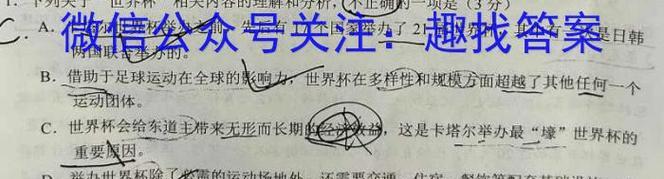 1. 下列关于“世界杯”相关内容的理解和分析,不正确的一项是(3分)
C.
微信公众号关注:趣找答案
A. 世界杯举办之前,先后有17个国家举办了21 是日韩
两国联合举办的。
B. 借助于足球运动在全球的影响力,世界杯在多样性和规模方面超越了其他任何一个
运动团体。
C. 世界杯会给东道主带来无形而长期的经济效益,这是卡塔尔举办最“壕”世界杯的
重要原因。
D. 举办世界杯除了必需的运动场地外,还需要交通、住宿、餐饮等配套基础设施